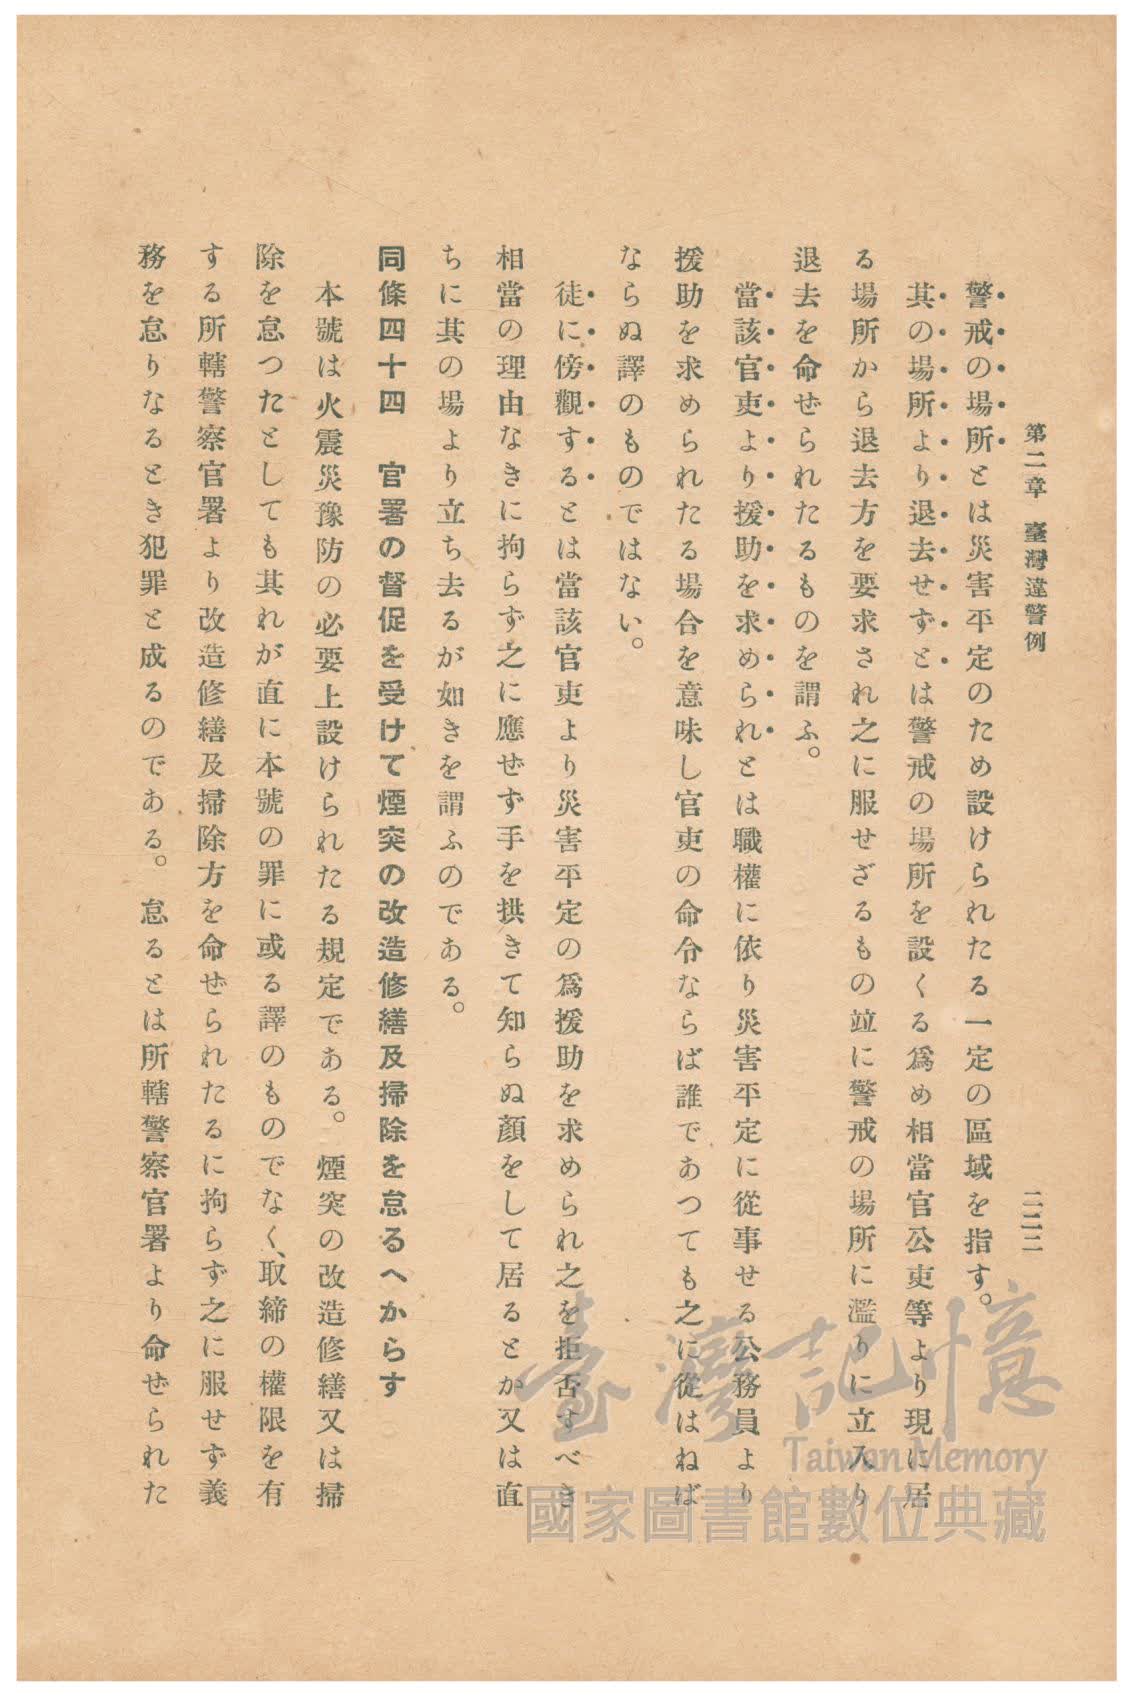 第二章　臺灣違警例
二二二
警戒の場所とは災害平定のため設けられたる一定の區域を指す。
其の場所より退去せずとは警戒の場所を設くる爲め相當官公吏等より現に居
る場所から退去方を要求され之に服せざるもの竝に警戒の場所に濫りに立入り
退去を命ぜられたるものを謂ふ。
當該官吏より援助を求められとは職權に依り災害平定に從事せる公務員より
援助を求められたる場合を意味し官吏の命令ならば誰であつても之に從はねば
ならぬ譯のものではない。
徒に傍觀するとは當該官吏より災害平定の爲援助を求められ之を拒否すべき
相當の理由なきに拘らず之に應ぜず手を拱きて知らぬ顏をして居るとか又は直
ちに其の場より立ち去るが如きを謂ふのである。
同條四十四　官署の督促を受けて煙突の改造修繕及掃除を怠るへからす
本號は火震災豫防の必要上設けられたる規定である。煙突の改造修繕又は掃
除を怠つたとしても其れが直に本號の罪に或る譯のものでなく、取締の權限を有
する所轄警察官署より改造修繕及掃除方を命ぜられたるに拘らず之に服せず義
務を怠りなるとき犯罪と成るのである。怠るとは所轄警察官署より命ぜられた
臺灣記憶
Taiwan Memory
國家圖書館數位典藏